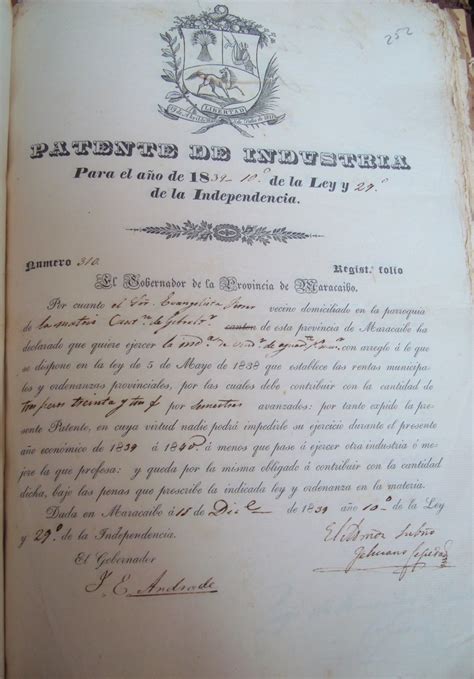 252
LIBERTAD
PATENTE DE INDUSTRIA
Para el año de 1839 10º de la Ley y 29º
de la Independencia.
Numero 310. Regist.º folio
El Gobernador de la Provincia de Maracaibo.
Por cuanto el Sor. Evangelista vecino domiciliado en la parroquia
de canton de esta provincia de Maracaibo ha
declarado que quiere ejercer la de con arreglo á lo que
se dispone en la ley de 5 de Mayo de 1838 que establece las rentas municipa-
les y ordenanzas provinciales, por las cuales debe contribuir con la cantidad
de treinta y por semestres avanzados: por tanto expido la pre-
sente Patente, en cuya virtud nadie podrá impedirle su ejercicio durante el presente
año económico de 1839 á 1840 á menos que pase á ejercer otra industria ó me-
jere la que profesa: y queda por la misma obligado á contribuir con la cantidad
dicha, bajo las penas que prescribe la indicada ley y ordenanza en la materia.
Dada en Maracaibo á 15 de Dice. de 1839 año 10º de la Ley
y 29º de la Independencia.
El Gobernador
J. E. Andrade